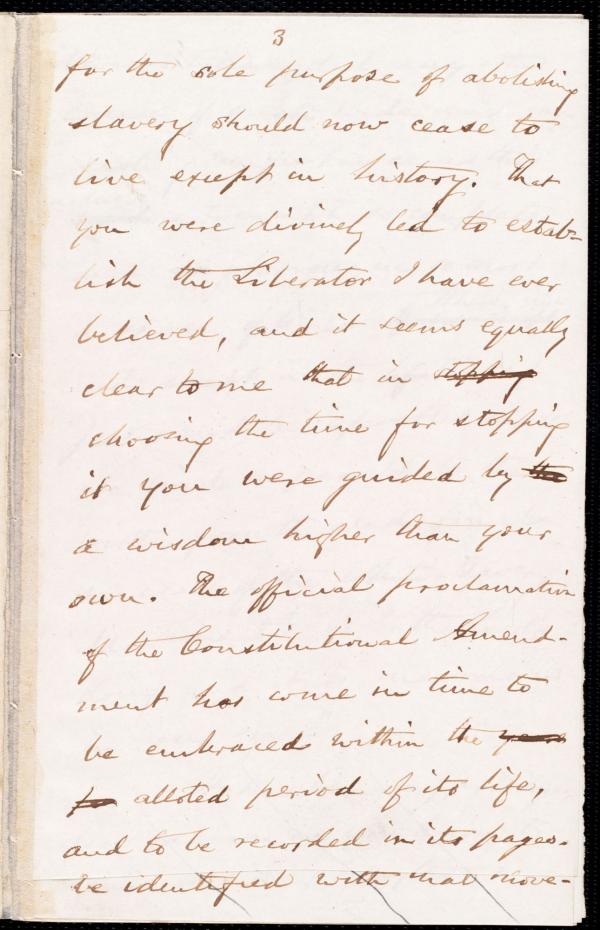 3
for the sole purpose of abolishing
slavery should now cease to
live except in history. That
you were divinely led to estab-
lish the Liberator I have ever
believed, and it seems equally
clear to me that in stopping
choosing the time for stopping
it you were guided by the
a wisdom higher than your
own. The official proclamation
of the Constitutional Amend-
ment has come in time to
be embraced within the years
alloted period of its life,
and to be recorded in its pages.
be identified with that move-